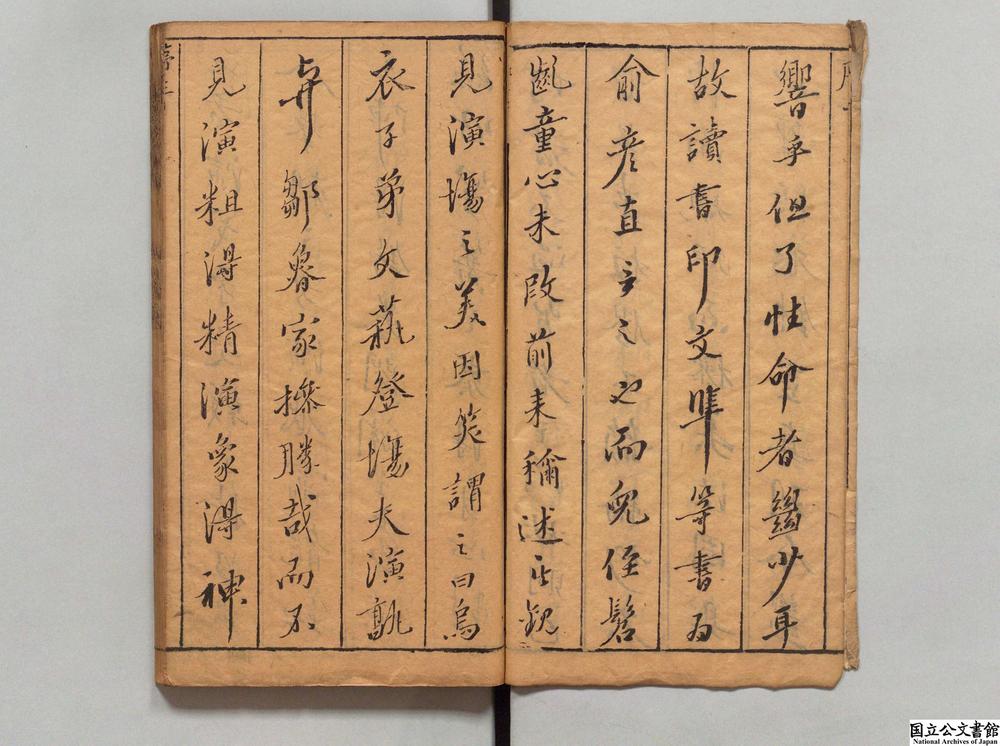 響乎但了性命者幾少耳
故讀書印文準等書為
俞彥直言之也而兒侄髫
齔童心未改前來稱述所觀
見演場之美因笑謂之曰烏
衣子弟文藝登場夫演孰
與鄒魯家擦勝哉而不
見演粗得精演象得神
国立公文書館
National Archives of Japan